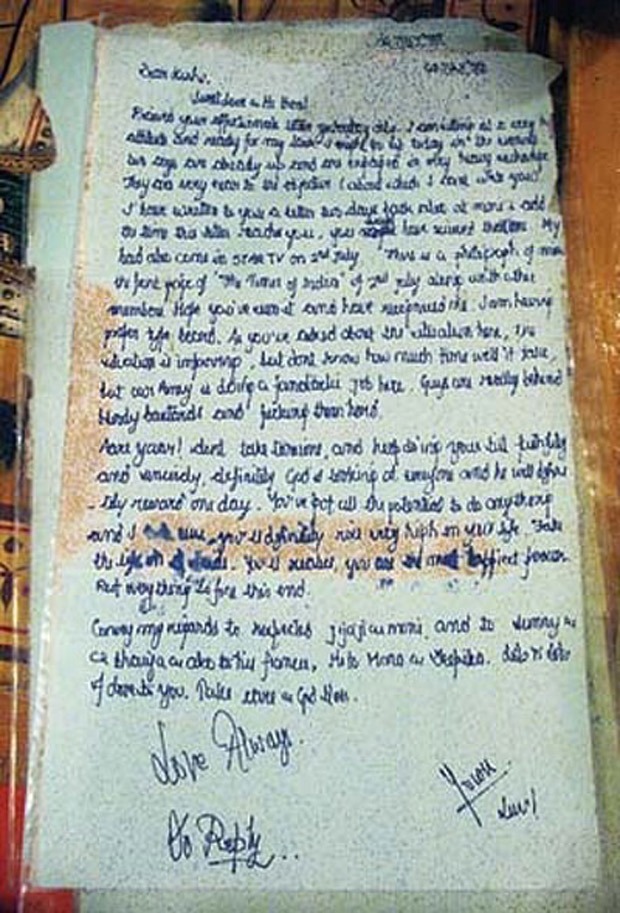 Dear Kush,
Sweet Love & Hi There!
Received your affectionate letter yesterday only. I am sitting at a very
altitude and ready for my task. I might be in today in the
two coys are already up and are engaged in very heavy exchange.
They are very near to the objective (about which I can't write you).
I have written to you a letter two days back also at mom's add
the time this letter reaches you, you have received that one. My
had also come in STAR TV on 2nd July. There is a photograph of mine
the front page of "The Times of India" of 2nd July along with other
members. Hope you've seen it and have recognised me. I am having
proper type beard. As you've asked about the situation here, The
situation is improving, but dont know how much time will it take,
but our Army is doing a fantastic job here. Guys are really behind
bloody bastards and fucking them hard.
Aare yaar! dont take tensions, and keep doing your bit faithfully
and sincerely, definitely God is looking at everyone and he will
-tely reward one day. You've got all the potential to do anything
and I am sure, you'll definitely rise very high in your life. Take
the life on you are the most person
Rest everything is fine this end.
Convey my regards to respected jijaji & mom, and to
bhaiya & also to his fiancee, Hi to Mona & Deepika. Lots n lots
of love to you. Take care & God bless.
Love Always.
Yours
Luv!
Do Reply...